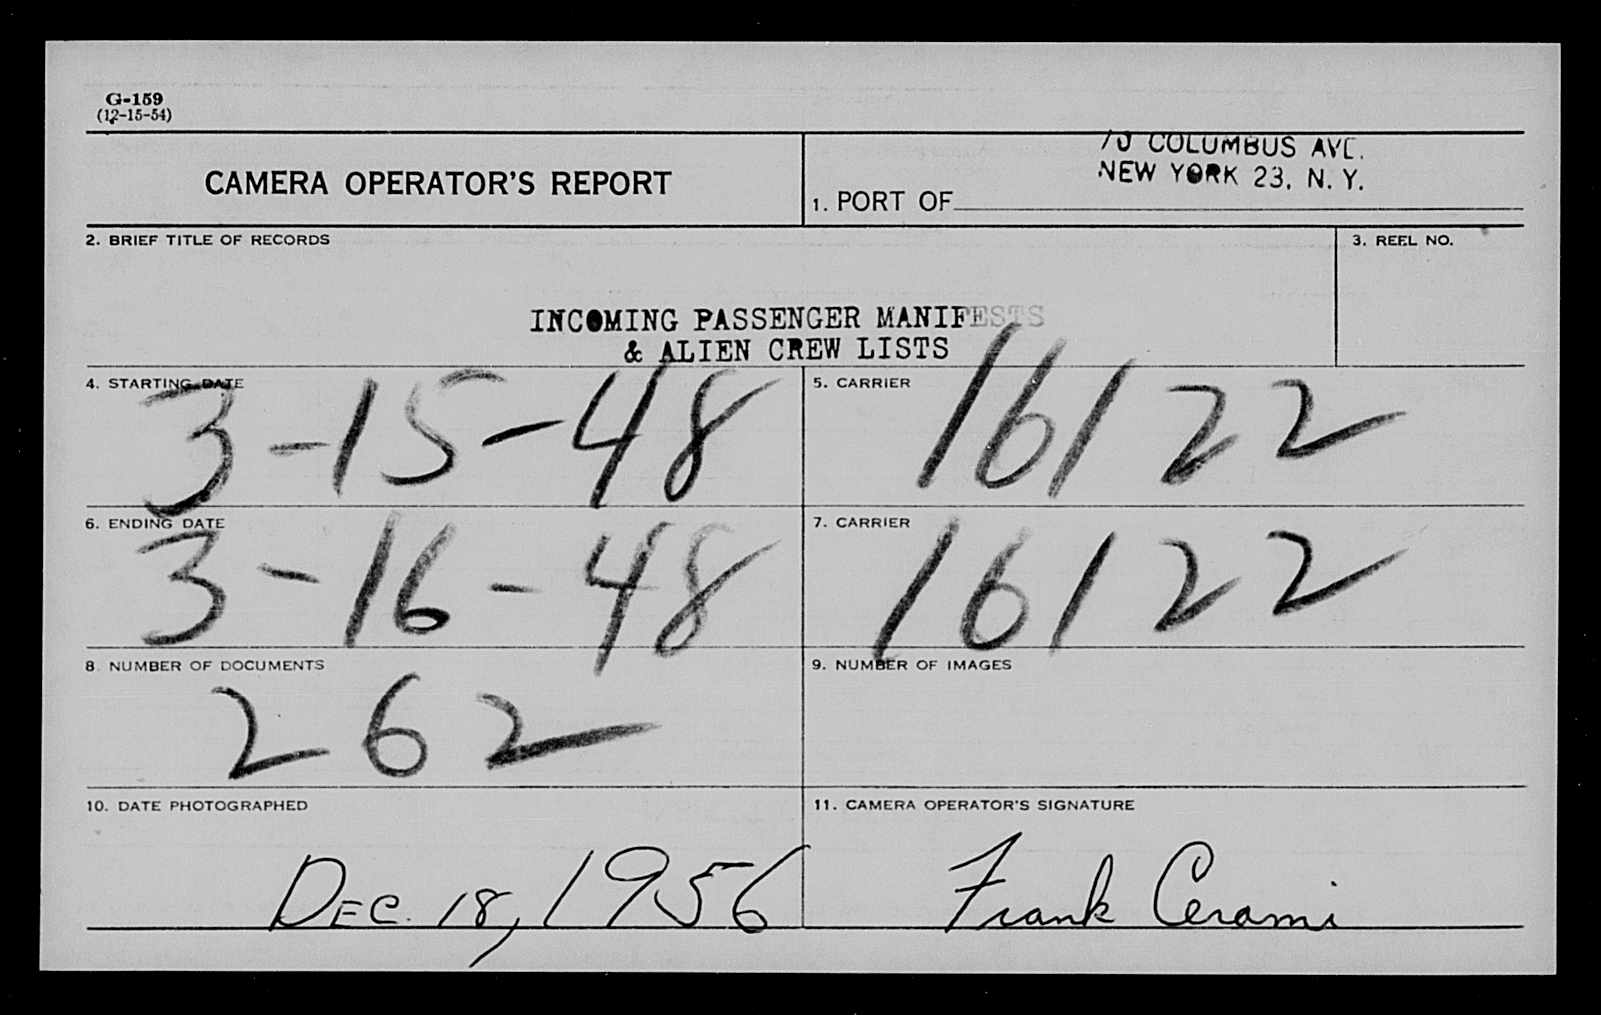 G-159
(12-15-54)
CAMERA OPERATOR'S REPORT
70 COLUMBUS AVE.
NEW YORK 23, N. Y.
1. PORT OF
2. BRIEF TITLE OF RECORDS
3. REEL NO.
INCOMING PASSENGER MANIFESTS
& ALIEN CREW LISTS
4. STARTING DATE
3-15-48
5. CARRIER
16122
6. ENDING DATE
3-16-48
7. CARRIER
16122
8. NUMBER OF DOCUMENTS
262
9. NUMBER OF IMAGES
10. DATE PHOTOGRAPHED
DEC. 18, 1956
11. CAMERA OPERATOR'S SIGNATURE
Frank Cerami